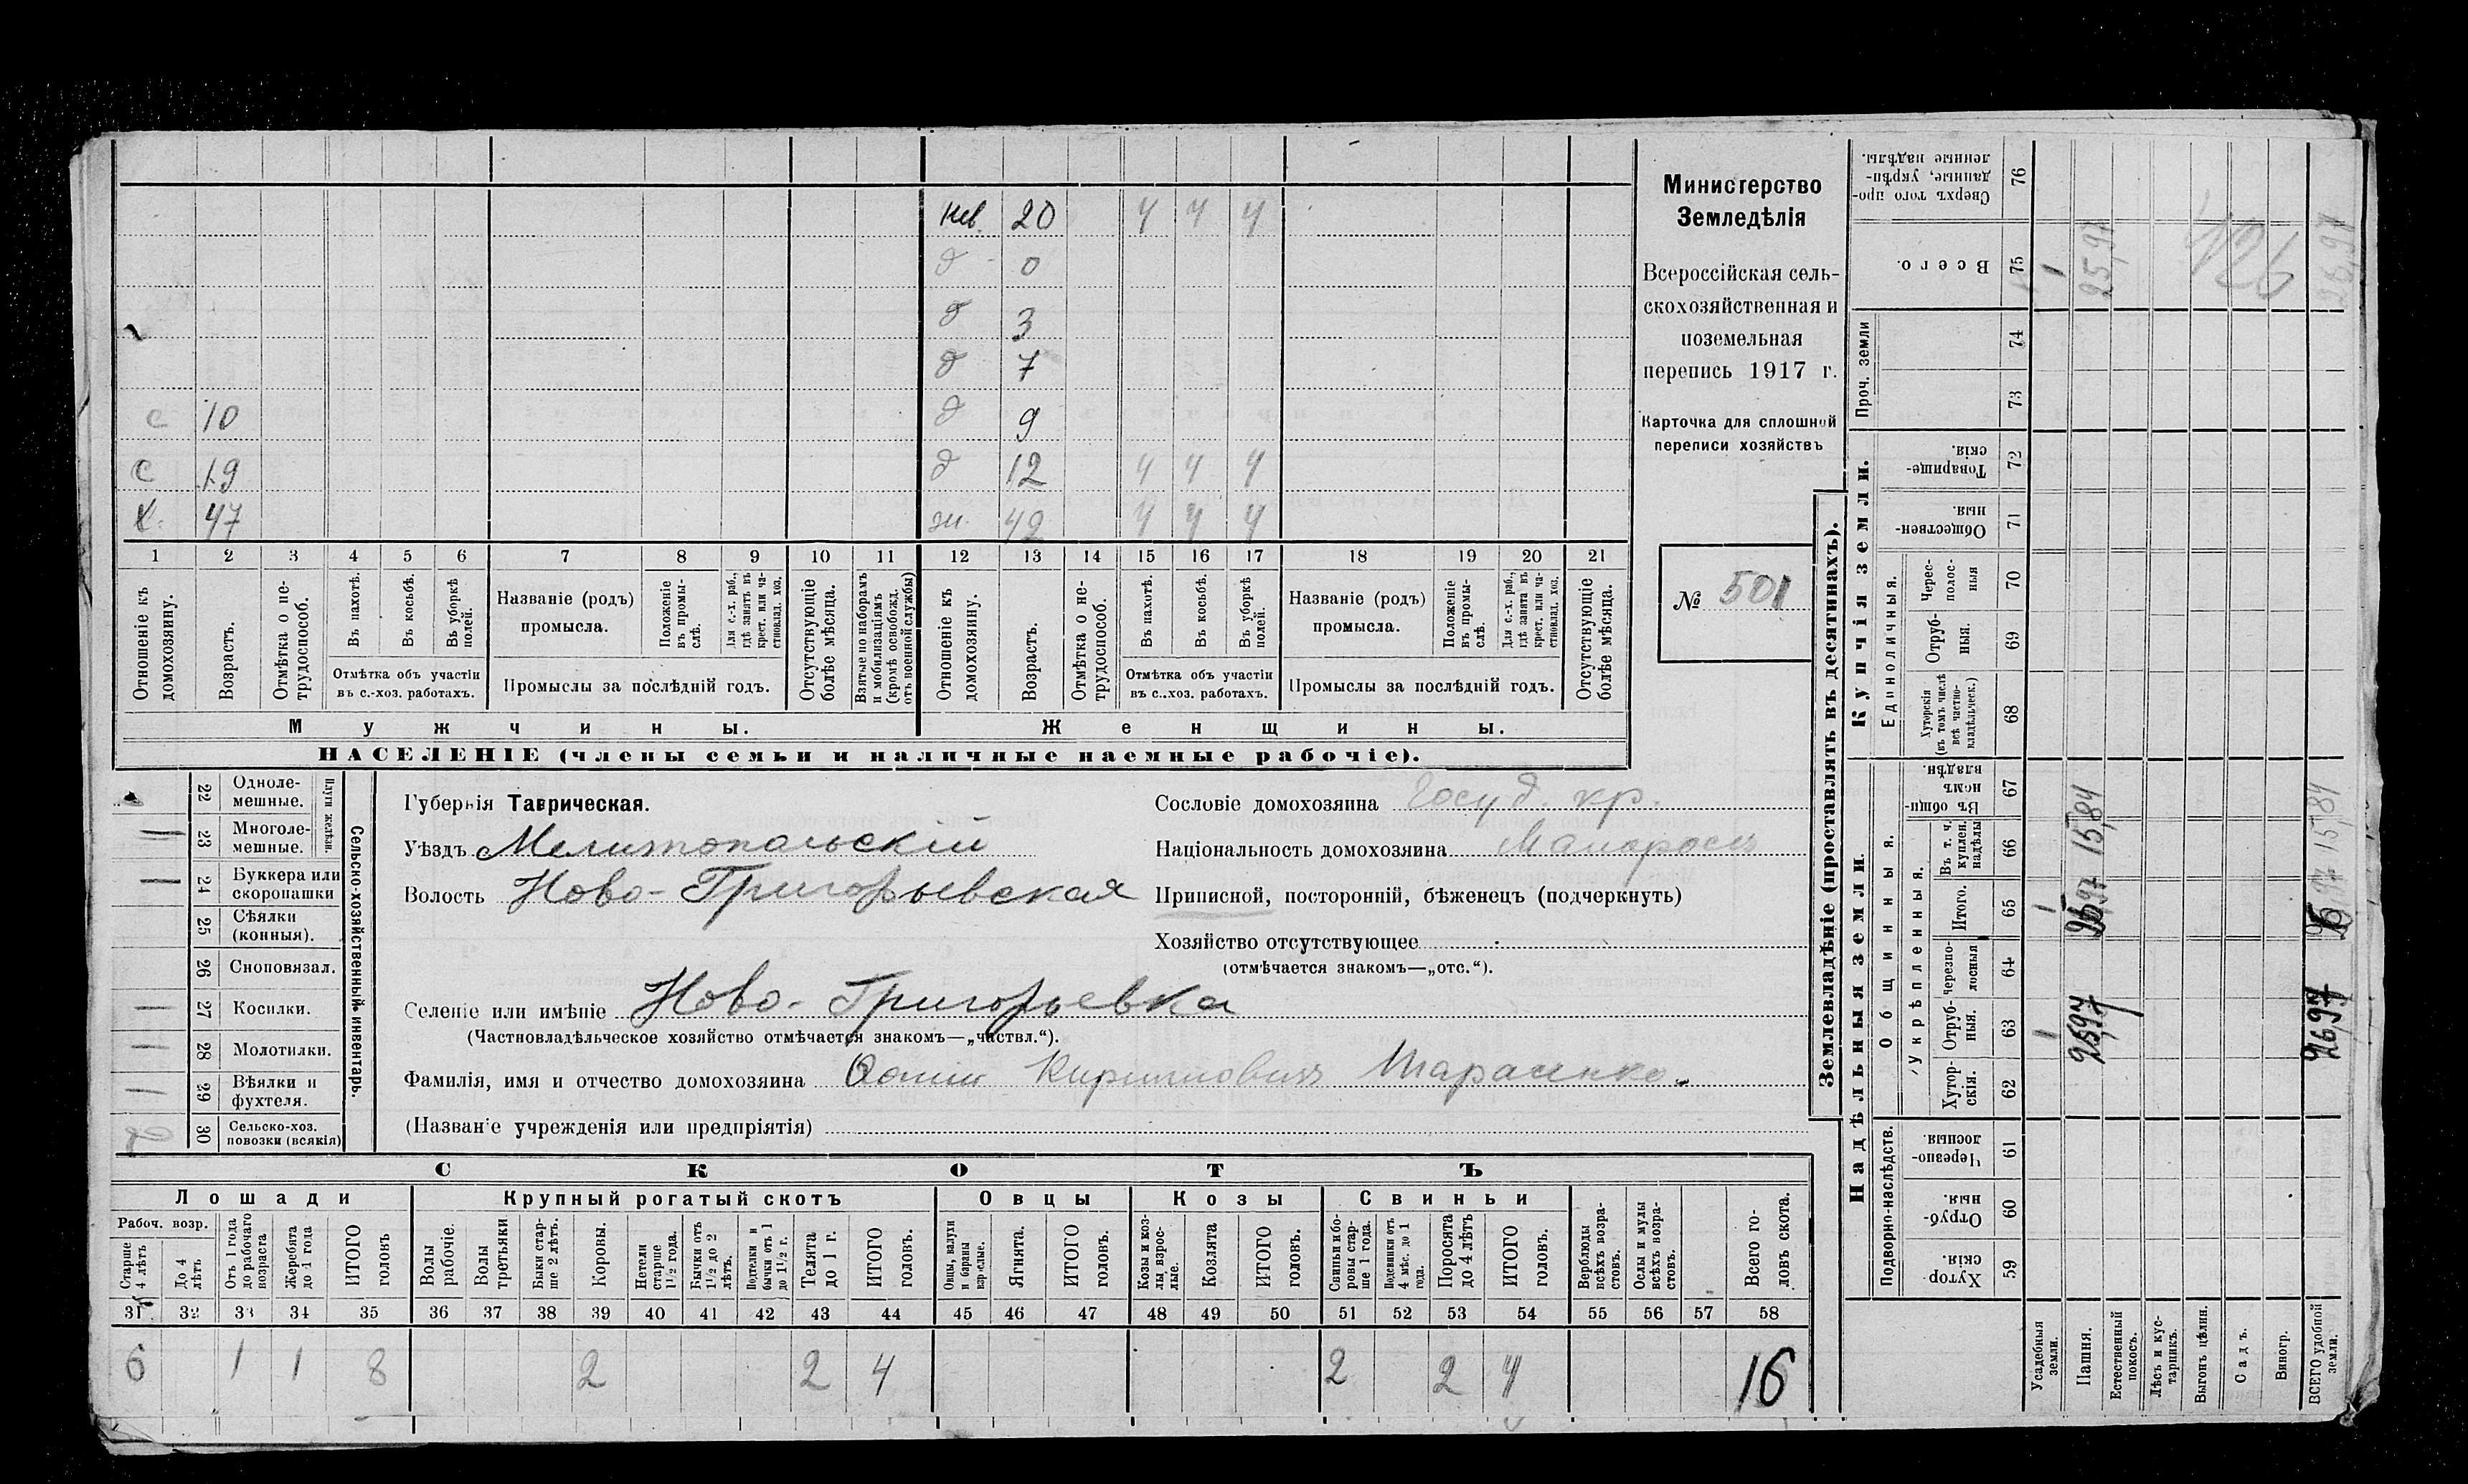 нев. 20 ч ч ч
д 0
д 3
д 7
с 10 д 9
с 19 д 12 ч ч ч
х. 47 ж. 42 ч ч ч
1 2 3 4 5 6 7 8 9 10 11 12 13 14 15 16 17 18 19 20 21
Отношеніе къ домохозяину.
Возрастъ.
Отмѣтка о нетрудоспособ.
Въ пахотѣ.
Въ косьбѣ.
Въ уборкѣ полей.
Отмѣтка объ участіи
въ с.-хоз. работахъ.
Названіе (родъ)
промысла.
Положеніе въ промыслѣ.
Для с.-х. раб., гдѣ занятъ въ крест. или частновлад. хоз.
Промыслы за послѣдній годъ.
Отсутствующіе болѣе мѣсяца.
Взятые по наборамъ и мобилизаціямъ (кромѣ освобожд. отъ военной службы)
Отношеніе къ домохозяину.
Возрастъ.
Отмѣтка о нетрудоспособ.
Въ пахотѣ.
Въ косьбѣ.
Въ уборкѣ полей.
Отмѣтка объ участіи
въ с.-хоз. работахъ.
Названіе (родъ)
промысла.
Положеніе въ промыслѣ.
Для с.-х. раб., гдѣ занята въ крест. или частновлад. хоз.
Промыслы за послѣдній годъ.
Отсутствующіе болѣе мѣсяца.
Мужчины. Женщины.
НАСЕЛЕНІЕ (члены семьи и наличные наемные рабочіе).
Министерство
Земледѣлія
Всероссійская сель-
скохозяйственная и
поземельная
перепись 1917 г.
Карточка для сплошной
переписи хозяйствъ
№ 501
Сельско-хозяйственный инвентарь.
Плуги желѣзн.
22 Одноле-
мешные.
23 Многоле-
мешные.
24 Буккера или
скоропашки
25 Сѣялки
(конныя).
26 Сноповязал.
27 Косилки.
28 Молотилки.
29 Вѣялки и
фухтеля.
30 Сельско-хоз.
повозки (всякія)
Губернія Таврическая.
Уѣздъ Мелитопольскій
Волость Ново-Григорьевская
Селеніе или имѣніе Ново-Григорьевка
(Частновладѣльческое хозяйство отмѣчается знакомъ—„частвл.“).
Фамилія, имя и отчество домохозяина Кириллович Тарасенко.
(Названіе учрежденія или предпріятія)
Сословіе домохозяина Госуд. кр.
Національность домохозяина Малоросъ
Приписной, посторонній, бѣженецъ (подчеркнуть)
Хозяйство отсутствующее
(отмѣчается знакомъ—„отс.“).
СКОТЪ
Лошади Крупный рогатый скотъ Овцы Козы Свиньи
Рабоч. возр.
Старше 4 лѣтъ
До 4 лѣтъ
Отъ 1 года до рабочаго возраста
Жеребята до 1 года
ИТОГО головъ
Волы рабочіе.
Волы третьяки
Быки старше 2 лѣтъ.
Коровы.
Нетели старше 1½ года.
Бычки отъ 1½ до 2 лѣтъ.
Подтелки и бычки отъ 1 до 1½ г.
Телята до 1 г.
ИТОГО головъ.
Овцы, валухи и бараны взрослые.
Ягнята.
ИТОГО головъ.
Козы и козлы взрослые.
Козлята
ИТОГО головъ.
Свиньи и боровы старше 1 года.
Подсвинки отъ 4 мѣс. до 1 года.
Поросята до 4 лѣтъ
ИТОГО головъ.
Верблюды всѣхъ возрастовъ.
Ослы и мулы всѣхъ возрастовъ.
Всего головъ скота.
31 32 33 34 35 36 37 38 39 40 41 42 43 44 45 46 47 48 49 50 51 52 53 54 55 56 57 58
6 1 1 8 2 2 4 2 2 4 16
Землевладѣніе (проставлять въ десятинахъ).
Надѣльныя земли. Купчія земли. Проч. земли
Подворно-наслѣдств.
Общинныя.
Укрѣпленныя.
Единоличныя.
59 Хуторскія.
60 Отрубныя.
61 Черезполосныя.
62 Хуторскія.
63 Отрубныя.
64 Черезполосныя
65 Итого.
66 Въ т. ч. куплен. надѣлы
67 Въ общинномъ владѣн.
68 Хуторскія (въ томъ числѣ всѣ частновладѣльческ.)
69 Отрубныя.
70 Черес-полосныя
71 Общественныя.
72 Товарищескія.
73
74
75 Всего.
76 Сверхъ того проданные, укрѣпленные надѣлы.
Усадебныя земли.
1 1 1
Пашня.
15,84 25,97
Естественный покосъ.
Лѣсъ и кустарникъ.
Выгонъ цѣлин.
Садъ.
Виногр.
ВСЕГО удобной земли.
26,97 15,84 26,97
126